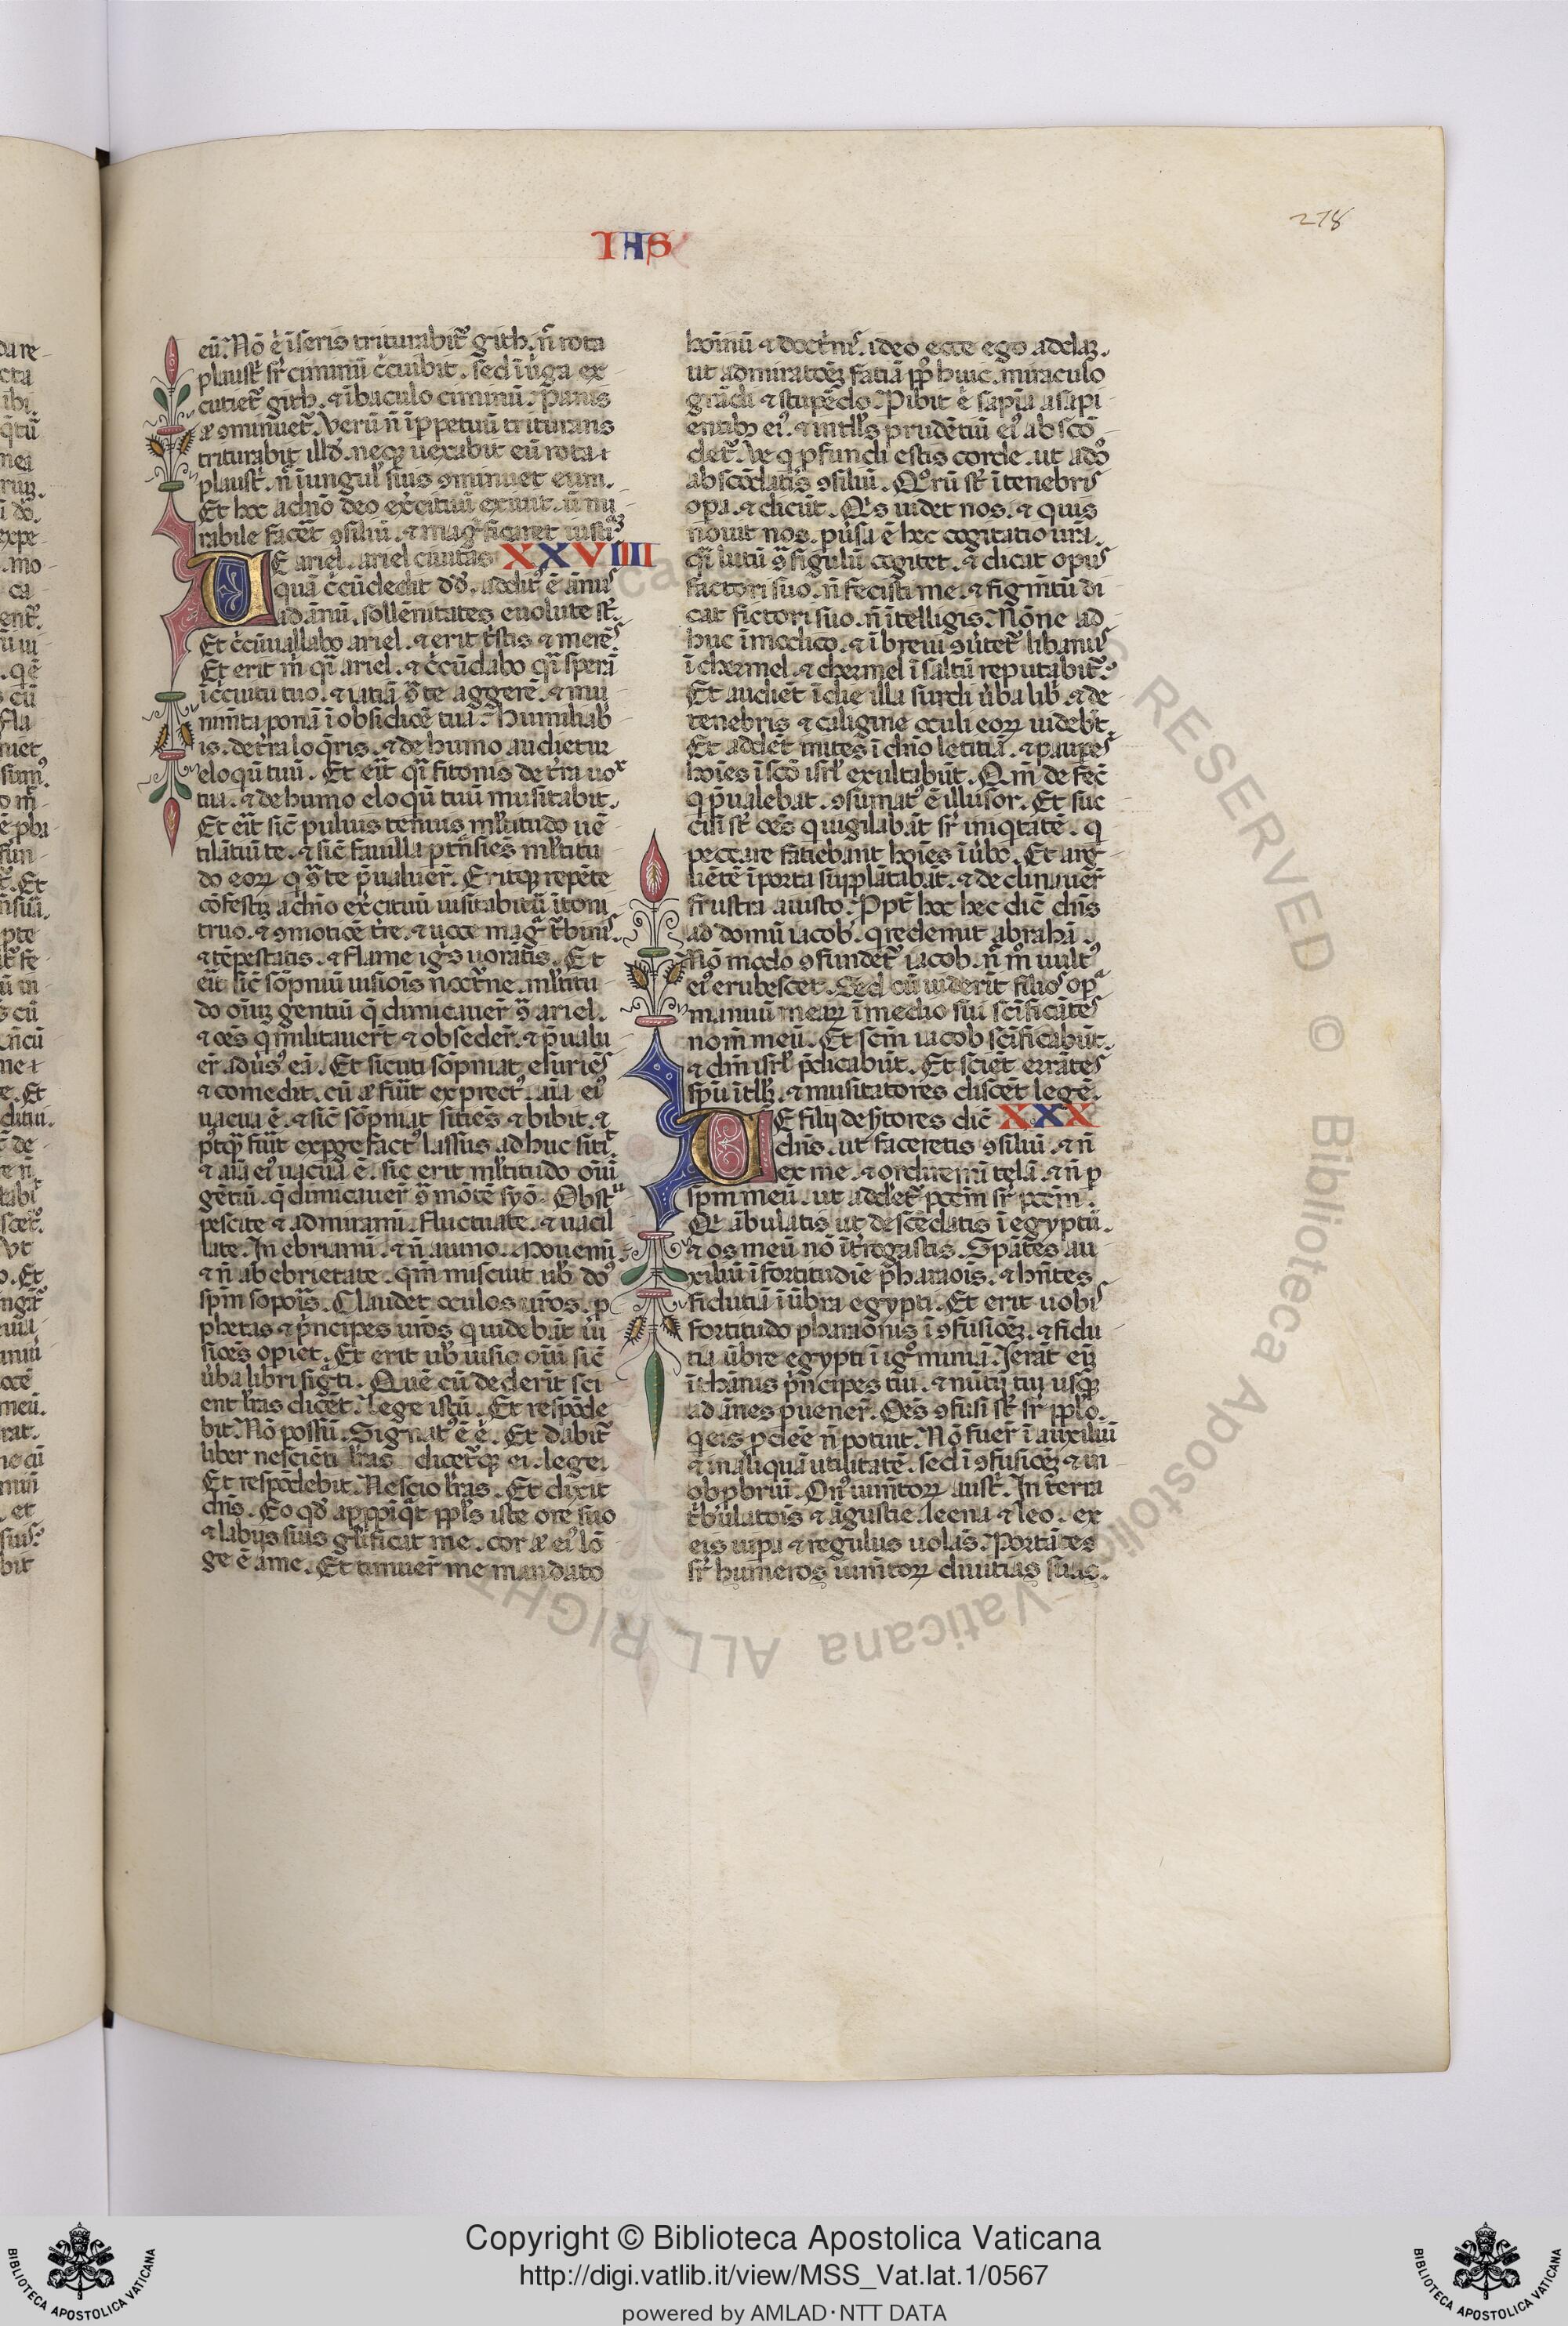 278
IHS
eū. Nō ē ī seris triturabit̄ gith. n̄ rota
plaustͥ sr̄ ciminū c̄cuibit. sed ī ūga ex
cutiet̄ gith. ⁊ ī baculo ciminū. Panis
æ ꝯminuet̄. Verū n̄ ī ppetuū triturans
triturabit illd̄. neqꝫ uexabit eū rota ⁊
plaustͥ. n̄ īungul̄ suis ꝯminuet eum.
Et hoc a dn̄o deo ex̄cituū exiuit. ū mi
rabile facēt ꝯsiliū. ⁊ mag̅ficaret iustiᷓ
UE ariel. ariel ciuitas XXVIIII
quā c̄cūdedit dd̄. addit᷒ ē ānu᷒
ad ānū. sollēnitates euolute st̄.
Et c̄cūuallabo ariel. ⁊ erit tͥstis ⁊ merē᷒
Et erit m̄ qͣī ariel. ⁊ c̄cūdabo qͣī sperā
ī c̄cuitu tuo. ⁊ iatiā ꝯͣ te aggerē. ⁊ mu
nim̄ta ponā ī obsidiōē tuā. Humiliab̄
is. de t̄ra loq̄ris. ⁊ de humo audietur
eloqū tuū. Et eīt qͣī fitonis de t̄ra uoˣ
tua. ⁊ de humo eloqū tuū musitabit.
Et eīt sic̄ puluis tenuis ml̄titudo uē
tilātiū te. ⁊ sic̄ fauilla ptn̄siēs ml̄titu
do eoꝝ q ꝯͣ te p̄ualuer̄. Eritqꝫ repēte
cōfestiꝫ a dn̄o ex̄cituū uisitabitū ī toni
truo. ⁊ ꝯmotiōē t̄re. ⁊ uoce magͣ t̄bini᷒.
⁊ tēpestatis. ⁊ flāme igͥs uorātis. Et
eīt sic̄ sōpniū uisiois noct̄ne. ml̄titu
do oīuꝫ gentiū q̄ dimicauer̄ ꝯͣ ariel.
⁊ oēs q̄ militauer̄t ⁊ obseder̄. ⁊ p̄ualu
er̄ adūs᷒ eā. Et sicuti sōpniat esuriē᷒
⁊ comedit. cū æ fiūt exprect᷒. aīa ei᷒
uacua ē. ⁊ sic̄ sōpniat sitiēs ⁊ bibit. ⁊
p᷒tqͣꝫ fūit expgefact᷒ lassus adhuc sitͥ.
⁊ aīa ei᷒ uacua ē. sic erit ml̄titudo oīū
gētiū. q̄ dimicauer̄ ꝯͣ mōtē syō. Obstͧ
pescite ⁊ admirami. fluctuate. ⁊ uacil
late. Inebriamī. ⁊ n̄ auino. Mouemī
⁊ n̄ ab ebrietate. qm̄ miscuit ub̄ do᷒
spm̄ sopoīs. Claudet oculos ur̄os. p
phetas ⁊ pͥncipes ur̄os q uidebāt ui
siōes opiet. Et erit ub̄ uisio oīū sic̄
ūba libri sigͣti. Quē cū dederīt sci
enti lr̄as dicēt. Lege istū. Et respōde
bit. Nō possū. Signat᷒ ē ē. Et dabit̄
liber nesciēti lr̄as dicet̄qꝫ ei. lege.
Et respōdebit. Nescio lr̄as. Et dixit
dn̄s. Eo qd̄ appͥpīqͣt ppl̄s iste ore suo
⁊ labijs suis gl̄ificat me. cor æ ei᷒ lō
ge ē ame. Et timuer̄ me mandato
hoīnū ⁊ doctͥni᷒. ideo ecce ego addaꝫ.
ut admiratōeꝫ fatiā pp̄lo huic. miraculo
grādi ⁊ stupēdo. Pibit ē sapīa a sapi
entibꝫ ei᷒. ⁊ intll̄s prudētiū ei᷒ abscō
det̄. Ve q pfundi estis corde. ut a dō
abscōdatis ꝯsiliū. Qꝝū st̄ ī tenebri᷒
opa. ⁊ dicūt. Qͥs uidet nos. ⁊ quis
nouit nos. pūsa ē hec cogitatio ur̄a.
qͣī lutū ꝯͣ figulū cogitet. ⁊ dicat opu᷒
factori suo. n̄ fecisti me. ⁊ figm̄tū di
cat fictori suo. n̄ ītelligis. Nōne ad
huc ī modico. ⁊ ī breui ꝯūtet̄ libanu᷒
ī chermel. ⁊ chermel ī saltū reputabit̄.
Et audiēt ī die illa surdi ūba lib̄. ⁊ de
tenebris ⁊ caligine oculi eoꝝ uidebt̄.
Et addēt mites ī dn̄o letitiā. ⁊ paupe᷒
hoīes ī scō isrl̄ exultabūt. Qm̄ defec̄
q p̄ualebat. ꝯsūmat᷒ ē illusor. Et suc
cisi st̄ oēs q uigilabāt sr̄ iniqtatē. q
peccare fatiebant hoīes ī ūbo. Et arg
uētē ī porta supplātabāt. ⁊ declinauer̄
frustra a iusto. Ppt̄ hoc hec dic̄ dn̄s
ad domū iacob. q redemit abrahā.
Nō modo ꝯfundet̄ iacob. n̄ m̄ uult᷒
ei᷒ erubescet. Sed cū uiderit filio᷒ opͣ
manuū meaꝝ ī medio sui scīficāte᷒
nom̄ meū. Et scīm iacob scīficabūt.
⁊ dm̄ isrl̄ p̄dicabūt. Et sciēt errāte᷒
spū ītlꝫ. ⁊ musitatores discēt legē.
UE filij des̄tores dic̄ XXX
dn̄s. ut faceretis ꝯsiliū. ⁊ n̄
ex me. ⁊ ordiremī telā. ⁊ n̄ p
spm̄ meū. ut addet̄ pctm̄ sr̄ pctm̄.
Qͥ ābulatis ut descēdatis ī egyptū.
⁊ os meū nō īt̄rogastis. Spātes au
xiliū ī fortitudīe pharaoīs. ⁊ hn̄tes
fidutiā ī ūbra egypti. Et erit uobi᷒
fortitudo pharaōnis ī ꝯfusiōeꝫ. ⁊ fidu
tia ūbre egypti ī igͦminiā. Ierāt eīꝫ
ī thānis pͥncipes tui. ⁊ nutij tui usqꝫ
ad ānes puener̄. Oēs ꝯfusi st̄ sr̄ pplo.
q eis pdeē n̄ potuit. Nō fuer̄ ī auxiliū
⁊ in aliquā utilitatē. sed ī ꝯfusiōeꝫ ⁊ in
obpbriū. On᷒ iumtoꝝ austͥ. In terra
t̄bulatois ⁊ āgustie. leena ⁊ leo. ex
eis uipa ⁊ regulus uolās. Portātes
sr̄ humeros iumtoꝝ diuitias suas.
Copyright © Biblioteca Apostolica Vaticana
http://digi.vatlib.it/view/MSS_Vat.lat.1/0567
powered by AMLAD·NTT DATA
BIBLIOTECA APOSTOLICA VATICANA
BIBLIOTECA APOSTOLICA VATICANA